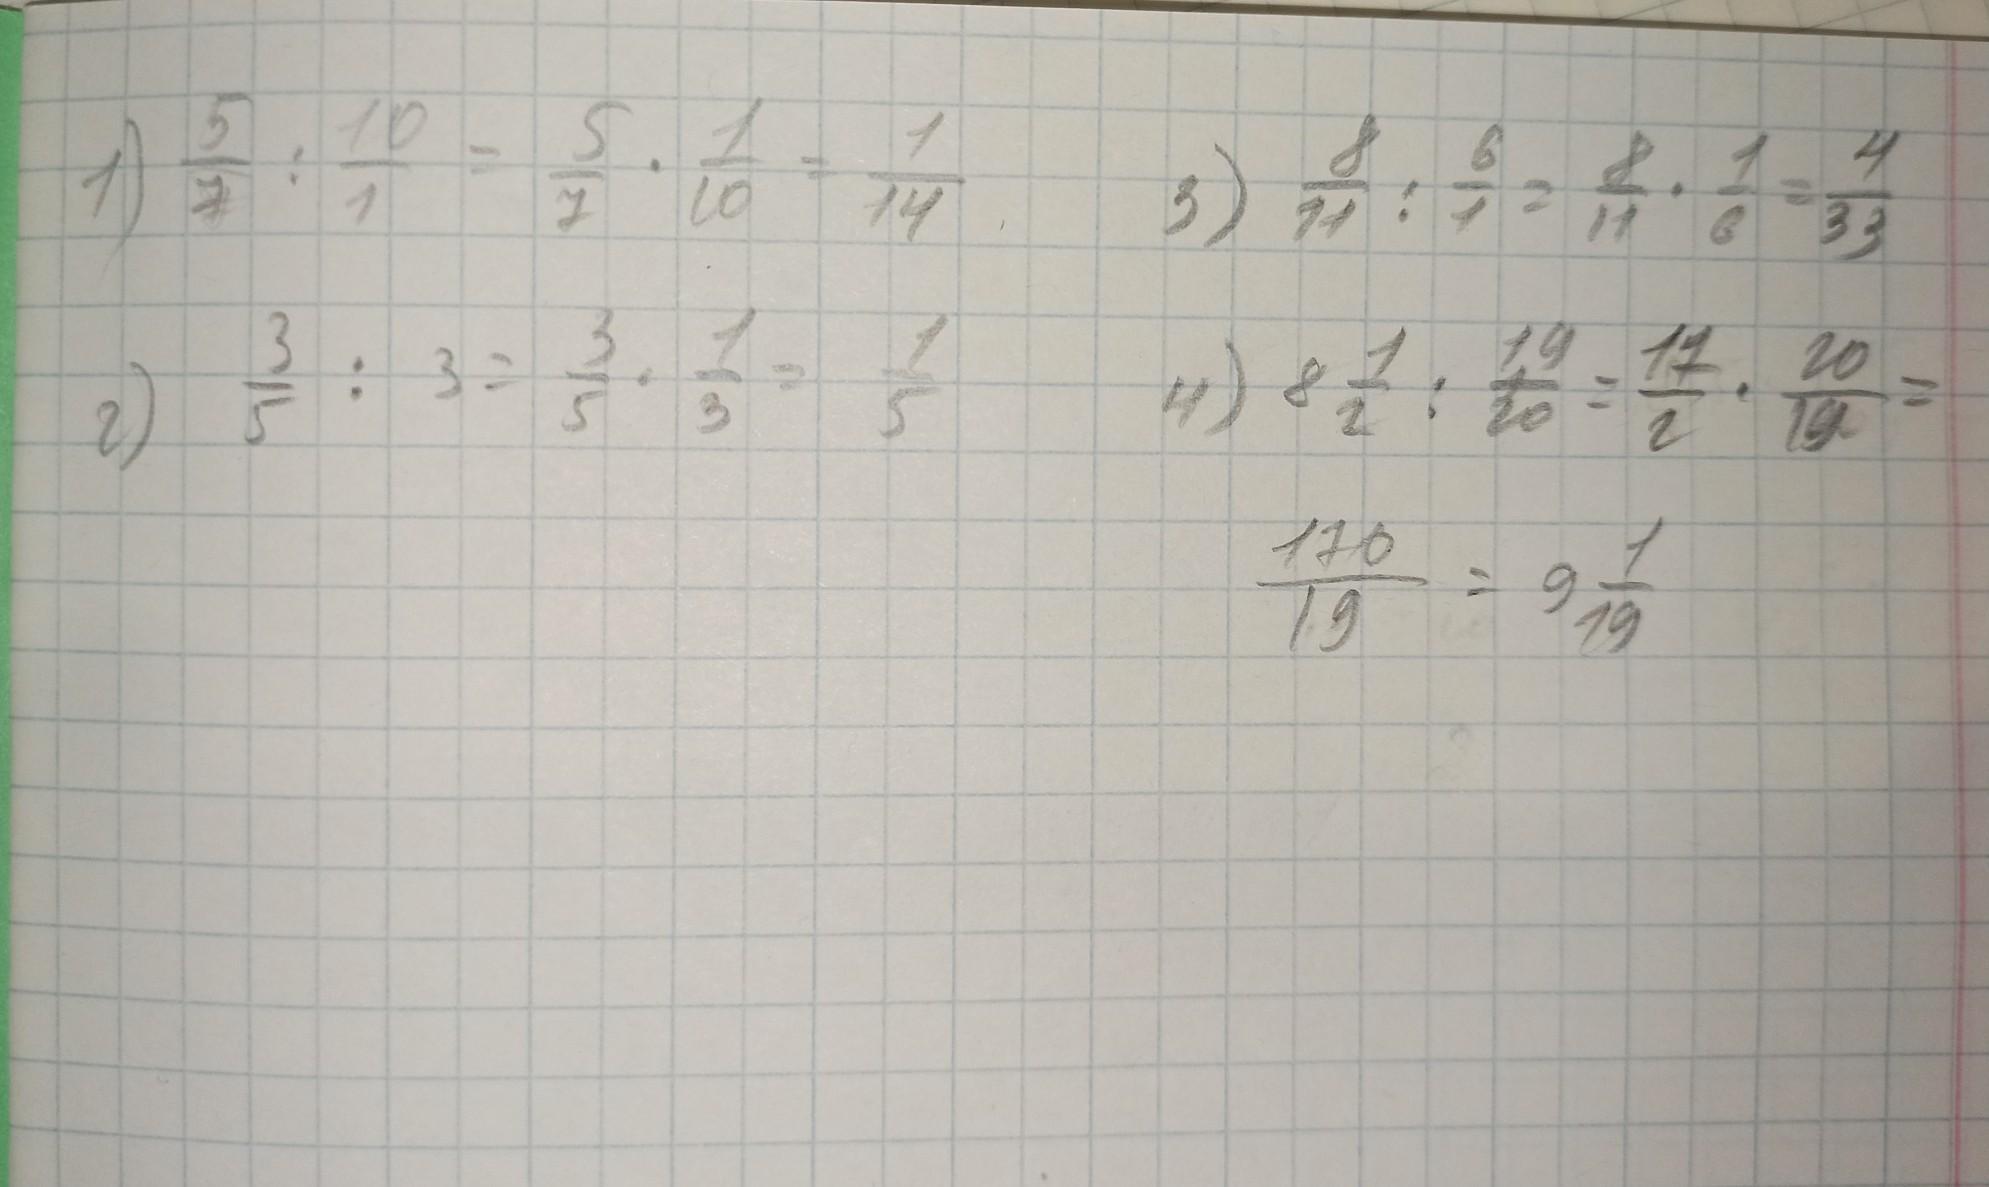 1) 5/7 : 10/1 = 5/7 · 1/10 = 1/14
2) 3/5 : 3 = 3/5 · 1/3 = 1/5
3) 8/11 : 6/1 = 8/11 · 1/6 = 4/33
4) 8 1/2 : 19/20 = 17/2 · 20/19 =
170/19 = 9 1/19